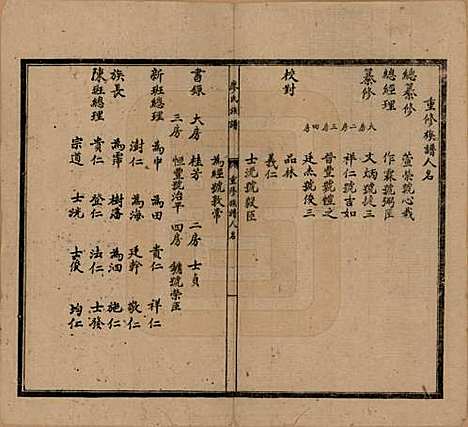 重修族譜人名
總纂修 萱榮號心栽
總經理 作霖號弼臣
纂修 大房 文炳號捷三
二房 祥仁號吉如
三房 晉豐號植之
四房 廷杰號俊三
校對 品林
義仁
士洗號毅臣
廖氏族譜 重修族譜人名
為經號敦常
書錄 大房 桂芳 二房 士貞
三房 恒豐號治平 四房 號榮臣
新班總理 為中 為田 貴仁 祥仁
澍仁 為海 廷幹 敬仁
族長 為霈 樹蕃 為洄 施仁
陳班總理 貴仁 登仁 法仁 士發
宗道 士洗 士俊 均仁